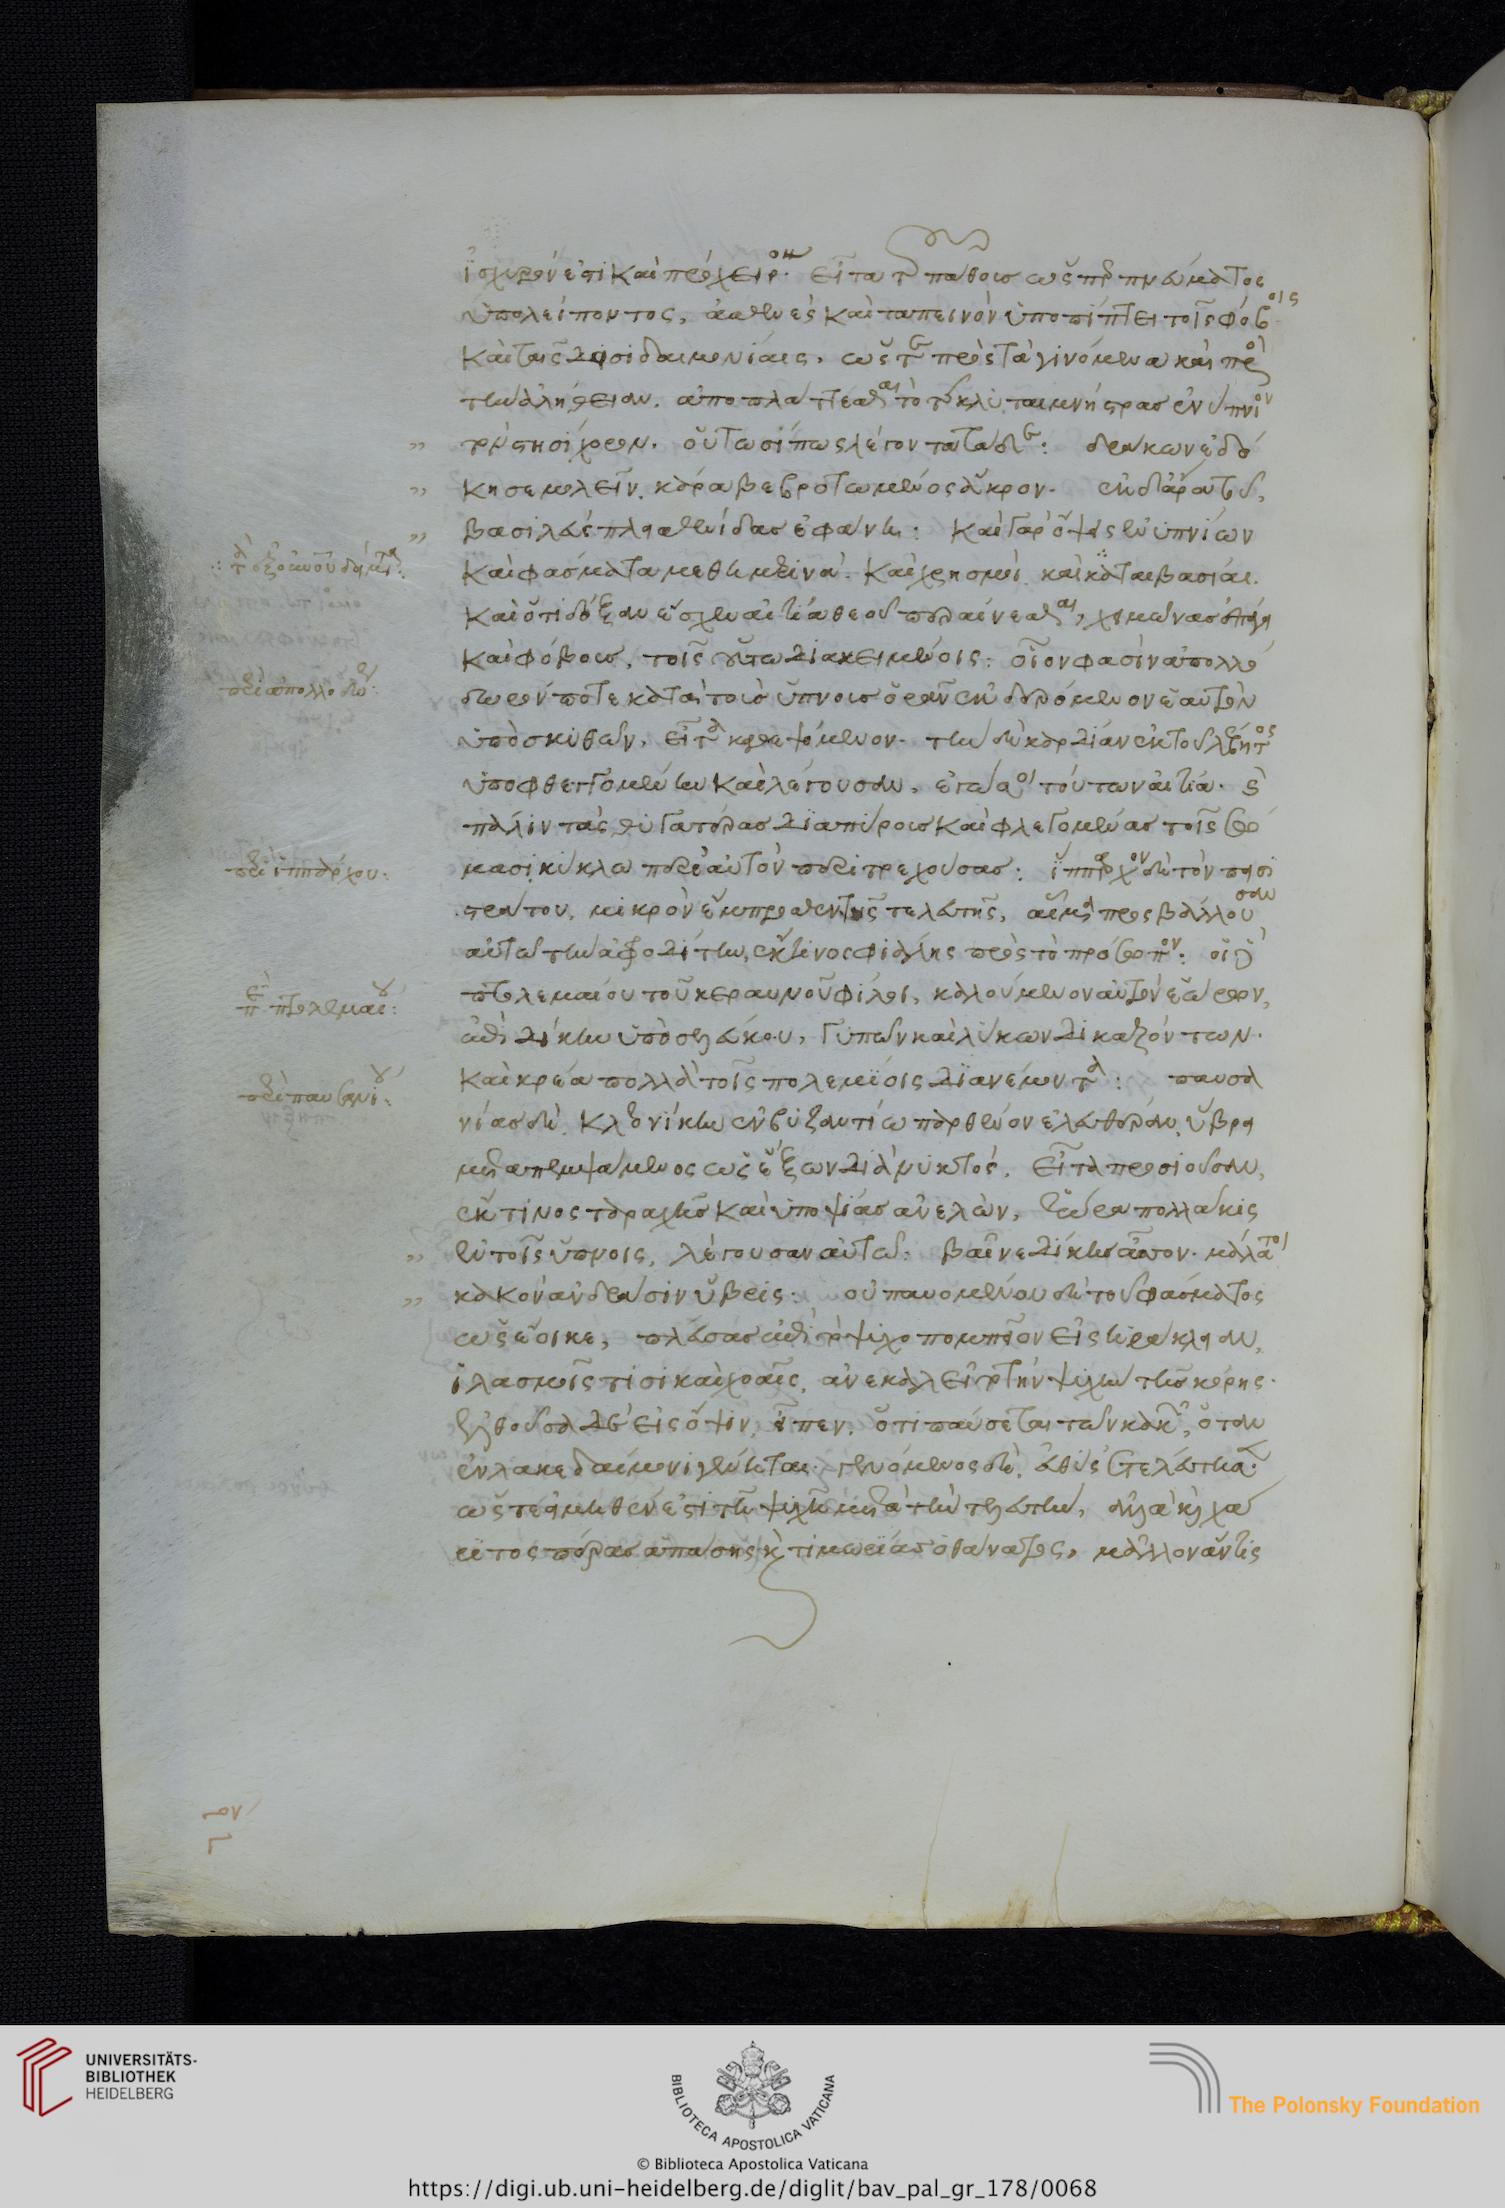 ἰσχυρόν ἐστι καὶ πρόχειρον· εἶτα τοῦ πάθους ὥσπερ πνεύματος
ὑπολείποντος, ἀσθενὲς καὶ ταπεινὸν ὑποπίπτει τοῖς φόβοις
καὶ ταῖς δεισιδαιμονίαις· ὥστε πρὸς τὰ γινόμενα καὶ πρὸς
τὴν ἀλήθειαν. ἀποπλάττεσθαι τὸ τῆς κλυταιμνήστρας ἐνύπνιον
τὸν στησίχορον. οὑτωσί πως λέγοντα τᾶ δὲ: δράκων ἐδό
κησε μολεῖν. κάρα βεβροτωμένος ἄκρον. ἐκ δ' ἄρα τοῦ,
βασιλεὺς πλεισθενίδας ἐφάνη: καὶ γὰρ ὄψεις ἐνυπνίων
καὶ φάσματα μεθημερινά. καὶ χρησμοὶ. καὶ καταιβασίαι.
καὶ ὅτι δόξαν ἔσχεν αἰτία θεοῦ περαίνεσθαι, χειμῶνας ἐπάγει
καὶ φόβους, τοῖς οὕτω διακειμένοις: οἷον φασὶν ἀπολλό
δωρόν ποτε κατὰ τοὺς ὕπνους ὁρᾶν ἐκδερόμενον ἑαυτὸν
ὑπὸ σκυθῶν, εἶτα καθεψόμενον. τὴν δὲ καρδίαν ἐκ τοῦ λέβητος
ὑποφθεγγομένην καὶ λέγουσαν, ἐγώ σοι τούτων αἰτία. καὶ
πάλιν τὰς θυγατέρας διαπύρους καὶ φλεγομένας τοῖς σώ
μασι, κύκλω περὶ αὐτὸν περιτρεχούσας: ἵππαρχον δὲ τὸν πεισι
στράτου, μικρὸν ἔμπροσθεν τῆς τελευτῆς, αἷμα προσβάλλουσαν
αὐτῶ τὴν ἀφροδίτην, ἔκ τινος φιάλης πρὸς τὸ πρόσωπον: οἱ δὲ
πτολεμαίου τοῦ κεραυνοῦ φίλοι, καλούμενον αὐτὸν ἑώρων,
ἐπὶ δίκην ὑπὸ σελεύκου, γυπῶν καὶ λύκων δικαζόντων.
καὶ κρέα πολλὰ τοῖς πολεμίοις διανέμοντα: παυσα
νίας δὲ. κλεονίκην ἐν βυζαντίω παρθένον ἐλευθέραν. ὕβρει
μεταπεμψάμενος ὡς ἕξων διὰ νυκτός. εἶτα προσιοῦσαν,
ἔκ τινος ταραχῆς καὶ ὑποψίας ἀνελὼν, ἑώρα πολλάκις
ἐν τοῖς ὕπνοις, λέγουσαν αὐτῶ: βαῖνε δίκης ἆσσον. μάλα τοι
κακὸν ἀνδράσιν ὕβρις: οὐ παυομένου δὲ τοῦ φάσματος
ὡς ἔοικε, πλεύσας ἐπὶ τὸ ψυχοπομπεῖον εἰς ἡράκλειαν,
ἱλασμοῖς τισι καὶ χοαῖς, ἀνεκαλεῖτο τὴν ψυχὴν τῆς κόρης.
ἐλθοῦσα δὲ εἰς ὄψιν, εἶπεν. ὅτι παύσεται τῶν κακῶν, ὅταν
ἐν λακεδαίμονι γένηται. γενόμενος δὲ. εὐθὺς ἐτελεύτησεν.
ὥστε εἰ μηθέν ἐστι τῆ ψυχῆ μετὰ τὴν τελευτὴν, ἀλλὰ καὶ χά
ριτος πέρας ἁπάσης καὶ τιμωρίας ὁ θάνατος, μᾶλλον ἄν τις
περὶ ἀπολλοδώρου:
περὶ ἱππάρχου:
περὶ πτολεμαίου:
περὶ παυσανίου:
UNIVERSITÄTS-
BIBLIOTHEK
HEIDELBERG
BIBLIOTECA APOSTOLICA VATICANA
© Biblioteca Apostolica Vaticana
The Polonsky Foundation
https://digi.ub.uni-heidelberg.de/diglit/bav_pal_gr_178/0068